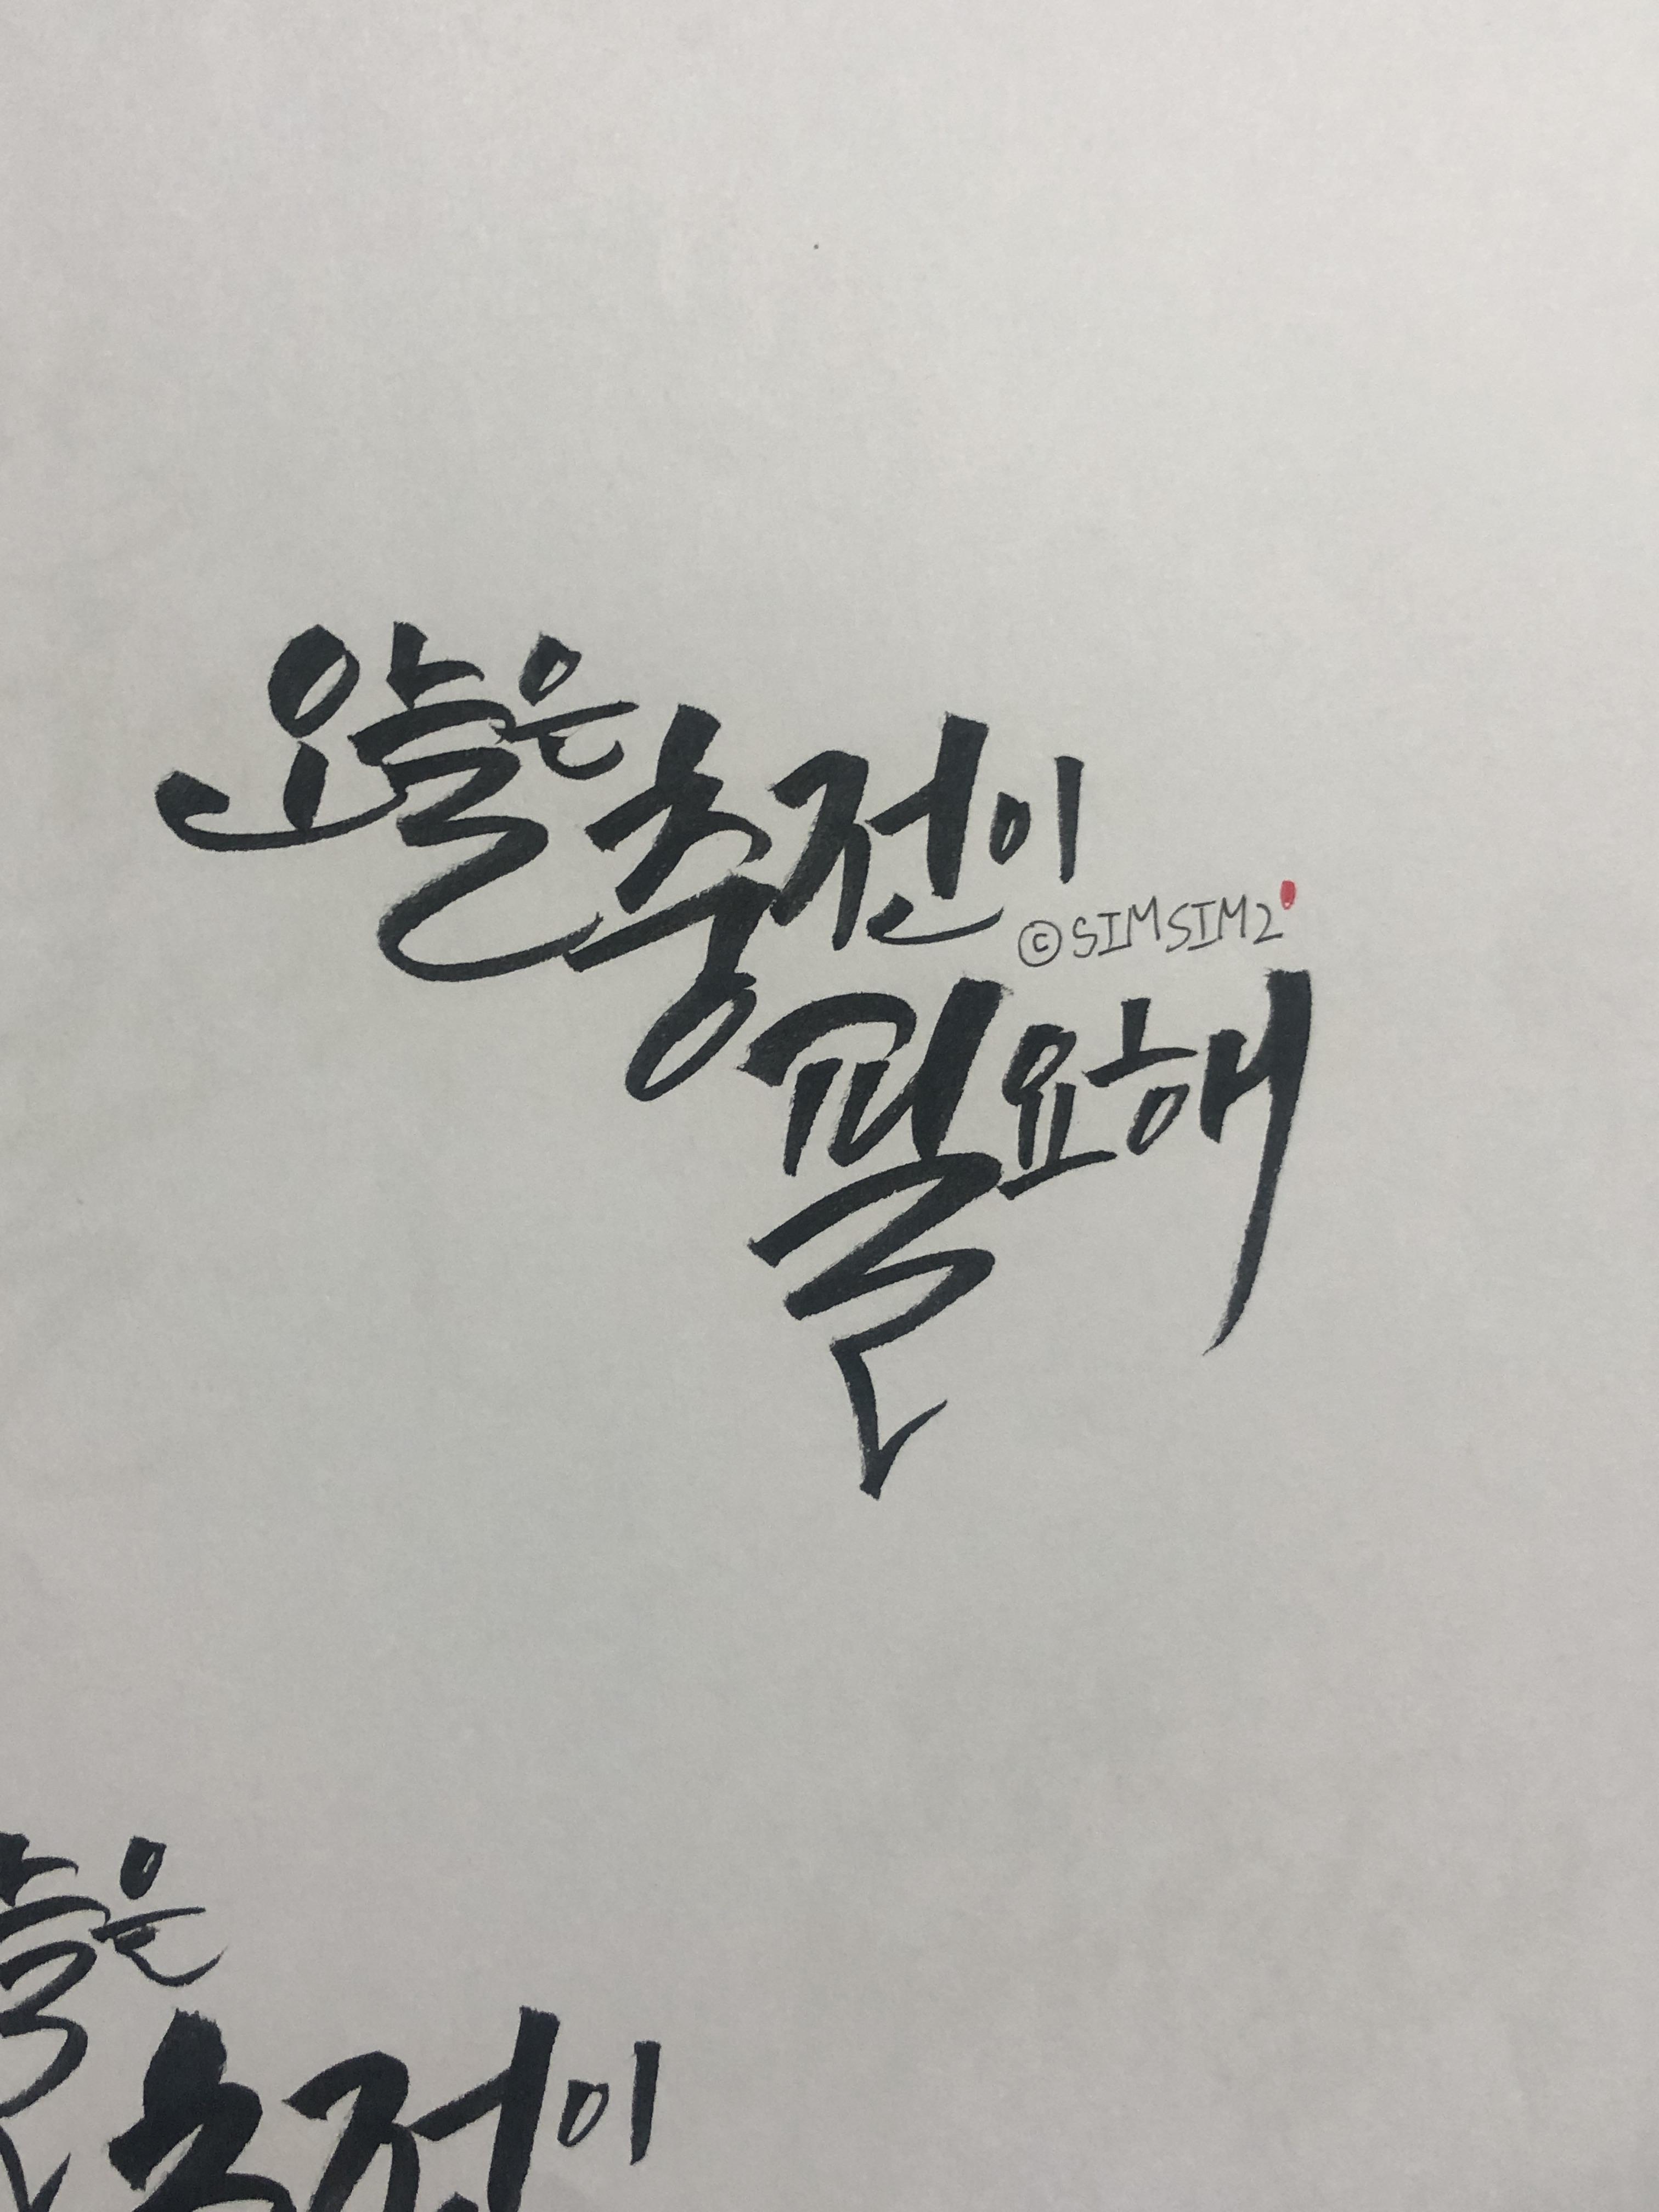 오늘은
충전이
©SIMSIM2
필요해
늘은
충전이